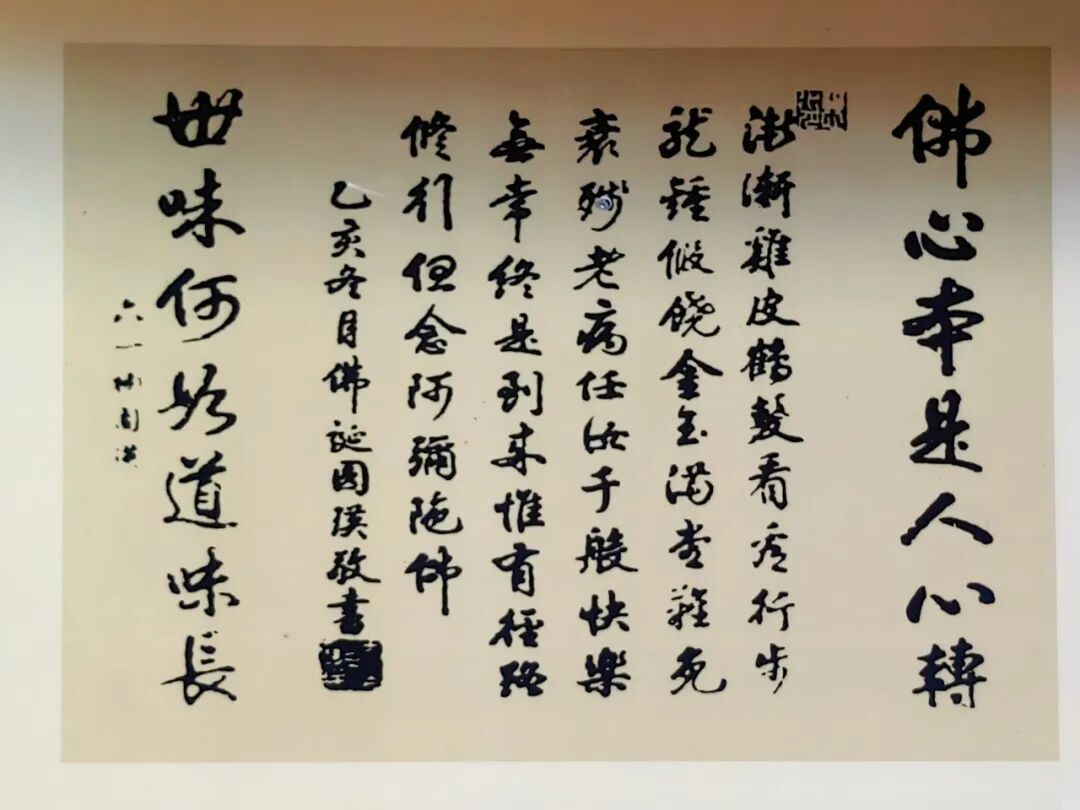 佛心本是人心轉
漸漸雞皮鶴髮看看行步
龍鍾假饒金玉滿堂難免
衰殘老病任汝千般快樂
無常終是到來惟有徑路
修行但念阿彌陀佛
乙亥冬月佛誕国敬書
世味何如道味長
六一